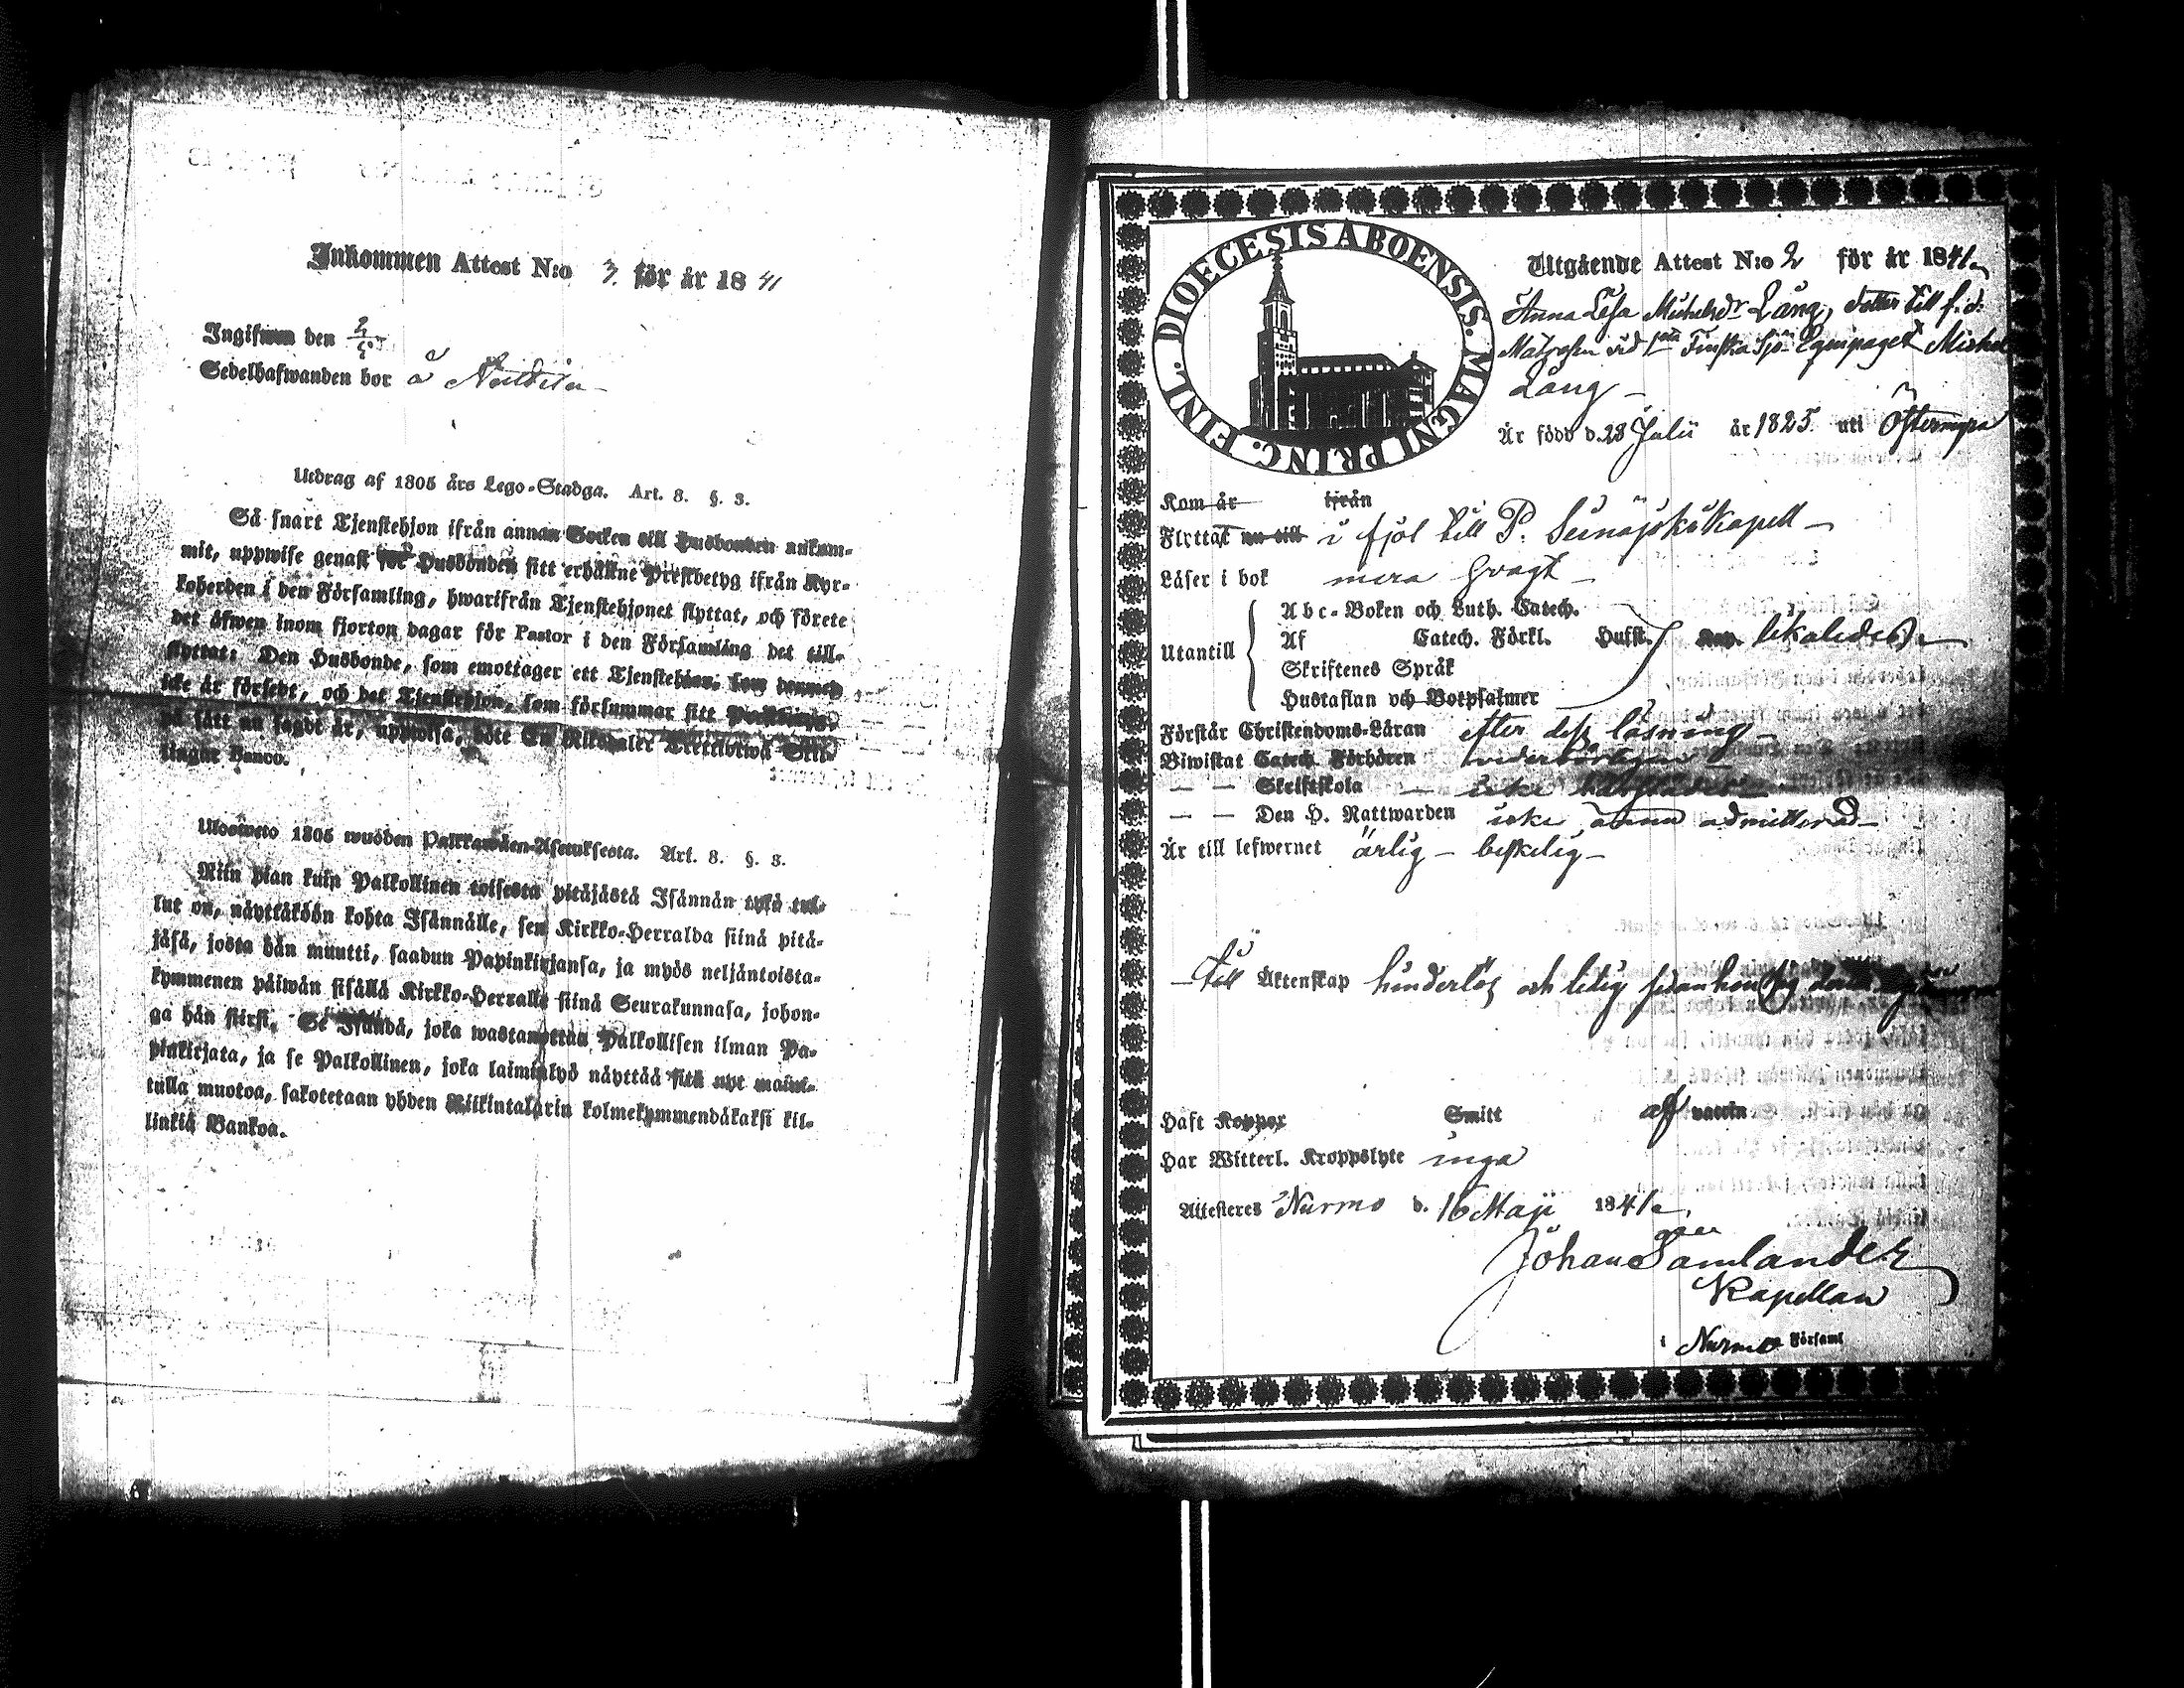 Inkommen Attest N:o 3. för år 1841
Ingifwen den
Sedelhafwanden bor å
Utdrag af 1805 års Lego-Stadga. Art. 8. §. 3.
Så snart Tjenstehjon ifrån annan Socken till Husbonden ankom-
mit, uppwise genast för Husbonden sitt erhållne Prestbetyg ifrån Kyr-
koherden i den Församling, hwarifrån Tjenstehjonet flyttat, och förete
det äfwen inom fjorton dagar för Pastor i den Församling det till-
flyttat: Den Husbonde, som emottager ett Tjenstehjon, som dermed
icke är försedt, och det Tjenstehjon, som försummar sitt
på sätt nu sagdt är, uppwisa, böte En Riksdaler Trettiotwå Skil-
lingar Banco.
Ulosweto 1805 wuoden Palkkawäen-Asetuksesta. Art. 8. §. 3.
Niin pian kuin Palkollinen toisesta pitäjästä Isännän tykö tul-
lut on, näyttäköön kohta Isännälle, sen Kirkko-Herralda siinä pitä-
jäsä, josta hän muutti, saadun Papinkirjansa, ja myös neljäntoista-
kymmenen päiwän sisällä Kirkko-Herralle siinä Seurakunnasa, johon-
ga hän siirsi. Se Isändä, joka wastanottaa Palkollisen ilman Pa-
pinkirjata, ja se Palkollinen, joka laiminlyö näyttää sitä nyt mainit-
tulla muotoa, sakotetaan yhden Riikintalarin kolmekymmendäkaksi kil-
linkiä Bankoa.
DIOECESIS ABOENSIS. MAGNI PRINC. FINL.
Utgående Attest N:o 2 för år 1841
Anna Lisa Michelsdr Lång, dotter till f. d.
Matrosen vid 1sta Finska Sjö-Equipaget Michel
Lång
Är född d. 28 Julii år 1825 uti Östermyra
Kom år ifrån
Flyttat nu till i fjol till P. Seinäjoki Kapell
Läser i bok mera svagt
Abc-Boken och Luth. Catech.
Utantill Af Catech. Förkl. Husft. likaledes
Skriftenes Språk
Hustaflan och Botpsalmer
Förstår Christendoms-Läran efter dess läsning
Biwistat Catech. Förhören
— — Skriftskola icke
— — Den H. Nattwarden icke ännu admitterad
Är till lefwernet ärlig - beskelig
till Äktenskap hinderlös och ledig sedan hon
Haft Koppor Smitt af vaccin
Har Witterl. Kroppslyte inga
Attesteres Nurmo d. 16 Maji 1841
Johan Samlander
Kapellan
i Nurmo Församl